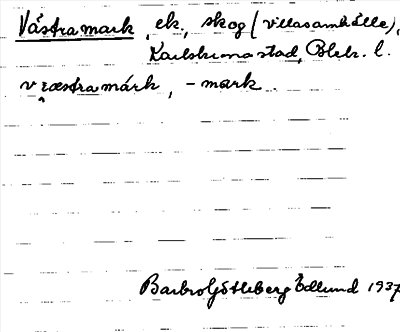 Västra mark, ek, skog (villasamhälle),
Karlskrona stad, Blek. l.
væstra márk, -mark
Barbro Götleberg Edlund 1937